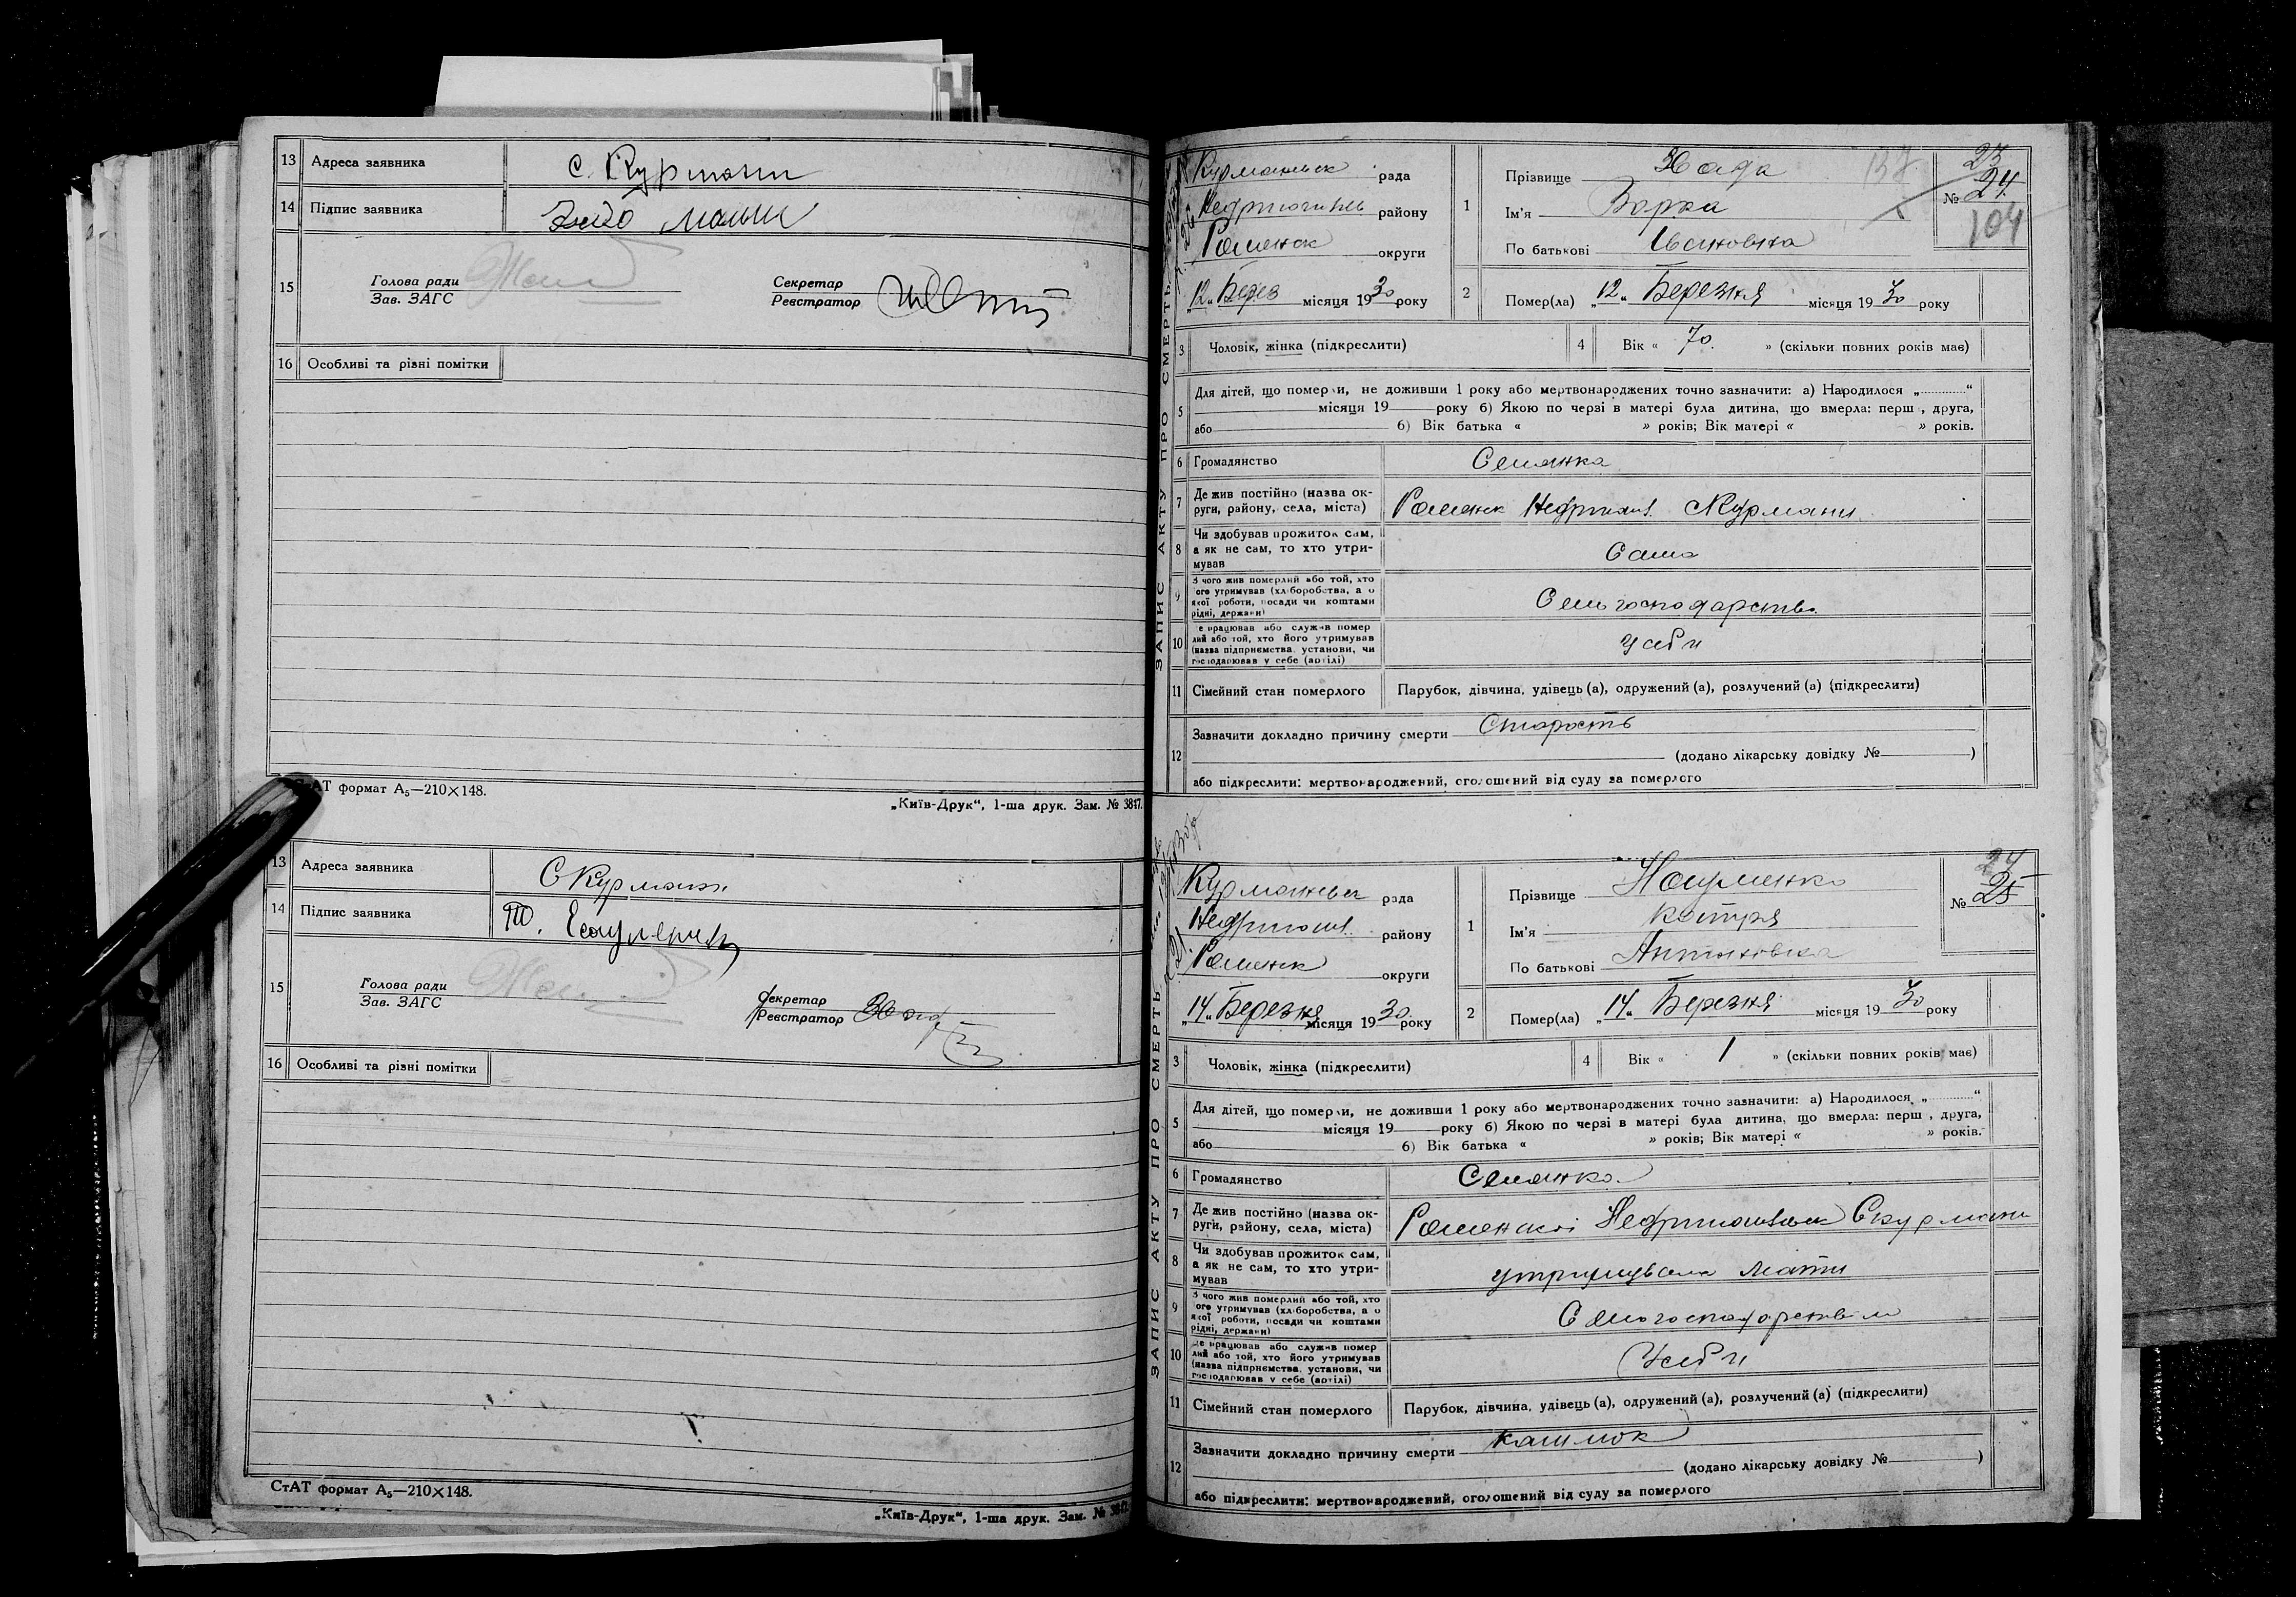 13 Адреса заявника С. Курмани
14 Підпис заявника
15 Голова ради
Зав. ЗАГС
Секретар
Реєстратор
16 Особливі та різні помітки
СтАТ формат А₅—210×148.
„Київ-Друк“, 1-ша друк. Зам. № 3817.
13 Адреса заявника С Курмани
14 Підпис заявника
15 Голова ради
Зав. ЗАГС
Секретар
Реєстратор
16 Особливі та різні помітки
СтАТ формат А₅—210×148.
„Київ-Друк“, 1-ша друк. Зам. №
ЗАПИС АКТУ ПРО СМЕРТЬ
Курманьск рада
району
Роменск округи
„12„ Берез місяця 1930 року
1 Прізвище
137
Ім'я Варка
По батькові Івановна
23
№ 24
104
2 Помер(ла) „12„ Березня місяця 1930 року
3 Чоловік, жінка (підкреслити)
4 Вік « 70. » (скільки повних років має)
5 Для дітей, що померли, не доживши 1 року або мертвонароджених точно зазначити: а) Народилося „ “
місяця 19 року б) Якою по черзі в матері була дитина, що вмерла: перш , друга,
або б) Вік батька « » років; Вік матері « » років.
6 Громадянство Селянка
7 Де жив постійно (назва ок-
руги, району, села, міста) Роменск Недригайл. С Курмани
8 Чи здобував прожиток сам,
а як не сам, то хто утри-
мував Сама
9 З чого жив померлий або той, хто
ого утримував (хліборобства, а о
якої роботи, посади чи коштами
рідні, держави) Сельгосподарство
10 е працював або служив помер
лий або той, хто його утримував
(назва підприємства, установи, чи
господарював у себе (артілі) У себе
11 Сімейний стан померлого Парубок, дівчина, удівець (а), одружений (а), розлучений (а) (підкреслити)
12 Зазначити докладно причину смерти Старость
(додано лікарську довідку № )
або підкреслити: мертвонароджений, оголошений від суду за померлого
ЗАПИС АКТУ ПРО СМЕРТЬ
Курманьск рада
Недригайл. району
Роменск округи
„14„ Березня місяця 1930 року
1 Прізвище Науменко
Ім'я
По батькові Антоновна
24
№ 25
2 Помер(ла) „14„ Березня місяця 1930 року
3 Чоловік, жінка (підкреслити)
4 Вік « 1 » (скільки повних років має)
5 Для дітей, що померли, не доживши 1 року або мертвонароджених точно зазначити: а) Народилося „ “
місяця 19 року б) Якою по черзі в матері була дитина, що вмерла: перш , друга,
або б) Вік батька « » років; Вік матері « » років.
6 Громадянство Селянка
7 Де жив постійно (назва ок-
руги, району, села, міста) Роменскої Недригайлівськ С Курмани
8 Чи здобував прожиток сам,
а як не сам, то хто утри-
мував утримувала мати
9 З чого жив померлий або той, хто
ого утримував (хліборобства, а о
якої роботи, посади чи коштами
рідні, держави) Сельгосподарством
10 е працював або служив помер
лий або той, хто його утримував
(назва підприємства, установи, чи
господарював у себе (артілі) У себе
11 Сімейний стан померлого Парубок, дівчина, удівець (а), одружений (а), розлучений (а) (підкреслити)
12 Зазначити докладно причину смерти кашлюк
(додано лікарську довідку № )
або підкреслити: мертвонароджений, оголошений від суду за померлого